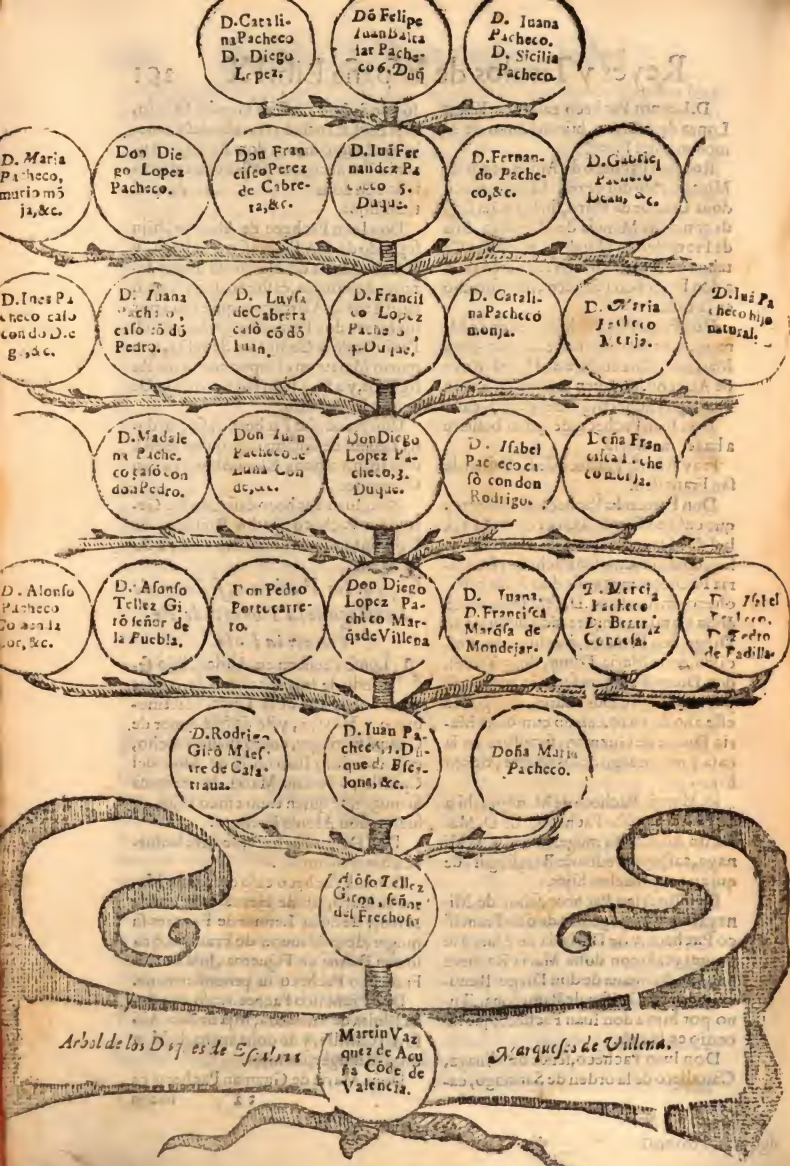 D. Catali-
na Pacheco
D. Diego
Lopez.
Dō Felipe
Iuan Balta
sar Pache-
co 6. Duq̄
D. Iuana
Pacheco.
D. Sicilia
Pacheco.
D. Maria
Pacheco,
murio mō
ja, &c.
Don Die
go Lopez
Pacheco.
Don Fran
cisco Perez
de Cabre-
ra, &c.
D. Iuā Fer
nandez Pa
checo 5.
Duque.
D. Fernan-
do Pache-
co, &c.
D. Gabriel
Pacheco
Dean, &c.
D. Ines Pa
checo caso
con do Die
go, &c.
D. Iuana
Pacheco,
caso cō dō
Pedro.
D. Luysa
de Cabrera
casò cō dō
Iuan.
D. Francis
co Lopez
Pacheco,
4. Duque.
D. Catali-
na Pacheco
monja.
D. Maria
Pacheco
Monja.
D. Iuā Pa
checo hijo
natural.
D. Madale
na Pache.
co casó con
don Pedro.
Don Iuan
Pacheco de
Luna Con
de, &c.
Don Diego
Lopez Pa-
checo, 3.
Duque.
D. Isabel
Pacheco ca-
sò con don
Rodrigo.
Doña Fran
cisca Pache
co monja.
D. Alonso
Pacheco
Comenda
dor, &c.
D. Alonso
Tellez Gi
rō señor de
la Puebla.
Don Pedro
Portocarre-
ro.
Don Diego
Lopez Pa-
checo Mar-
q̄s de Villena
D. Iuana.
D. Francisca
Marq̄sa de
Mondejar.
Pacheco
D. Beatriz
D. Isabel
Pacheco.
D. Pedro
de Padilla.
D. Rodrigo
Girō Maes-
tre de Cala-
traua.
D. Iuan Pa-
checo 1. Du-
que de Esca-
lona, &c.
Doña Maria
Pacheco.
Alōso Tellez
Giron, señor
del Frechoso
Arbol de los Duques de Escalona
Marqueses de Villena.
Martin Vaz
quez de Acu
ña Cōde de
Valencia.